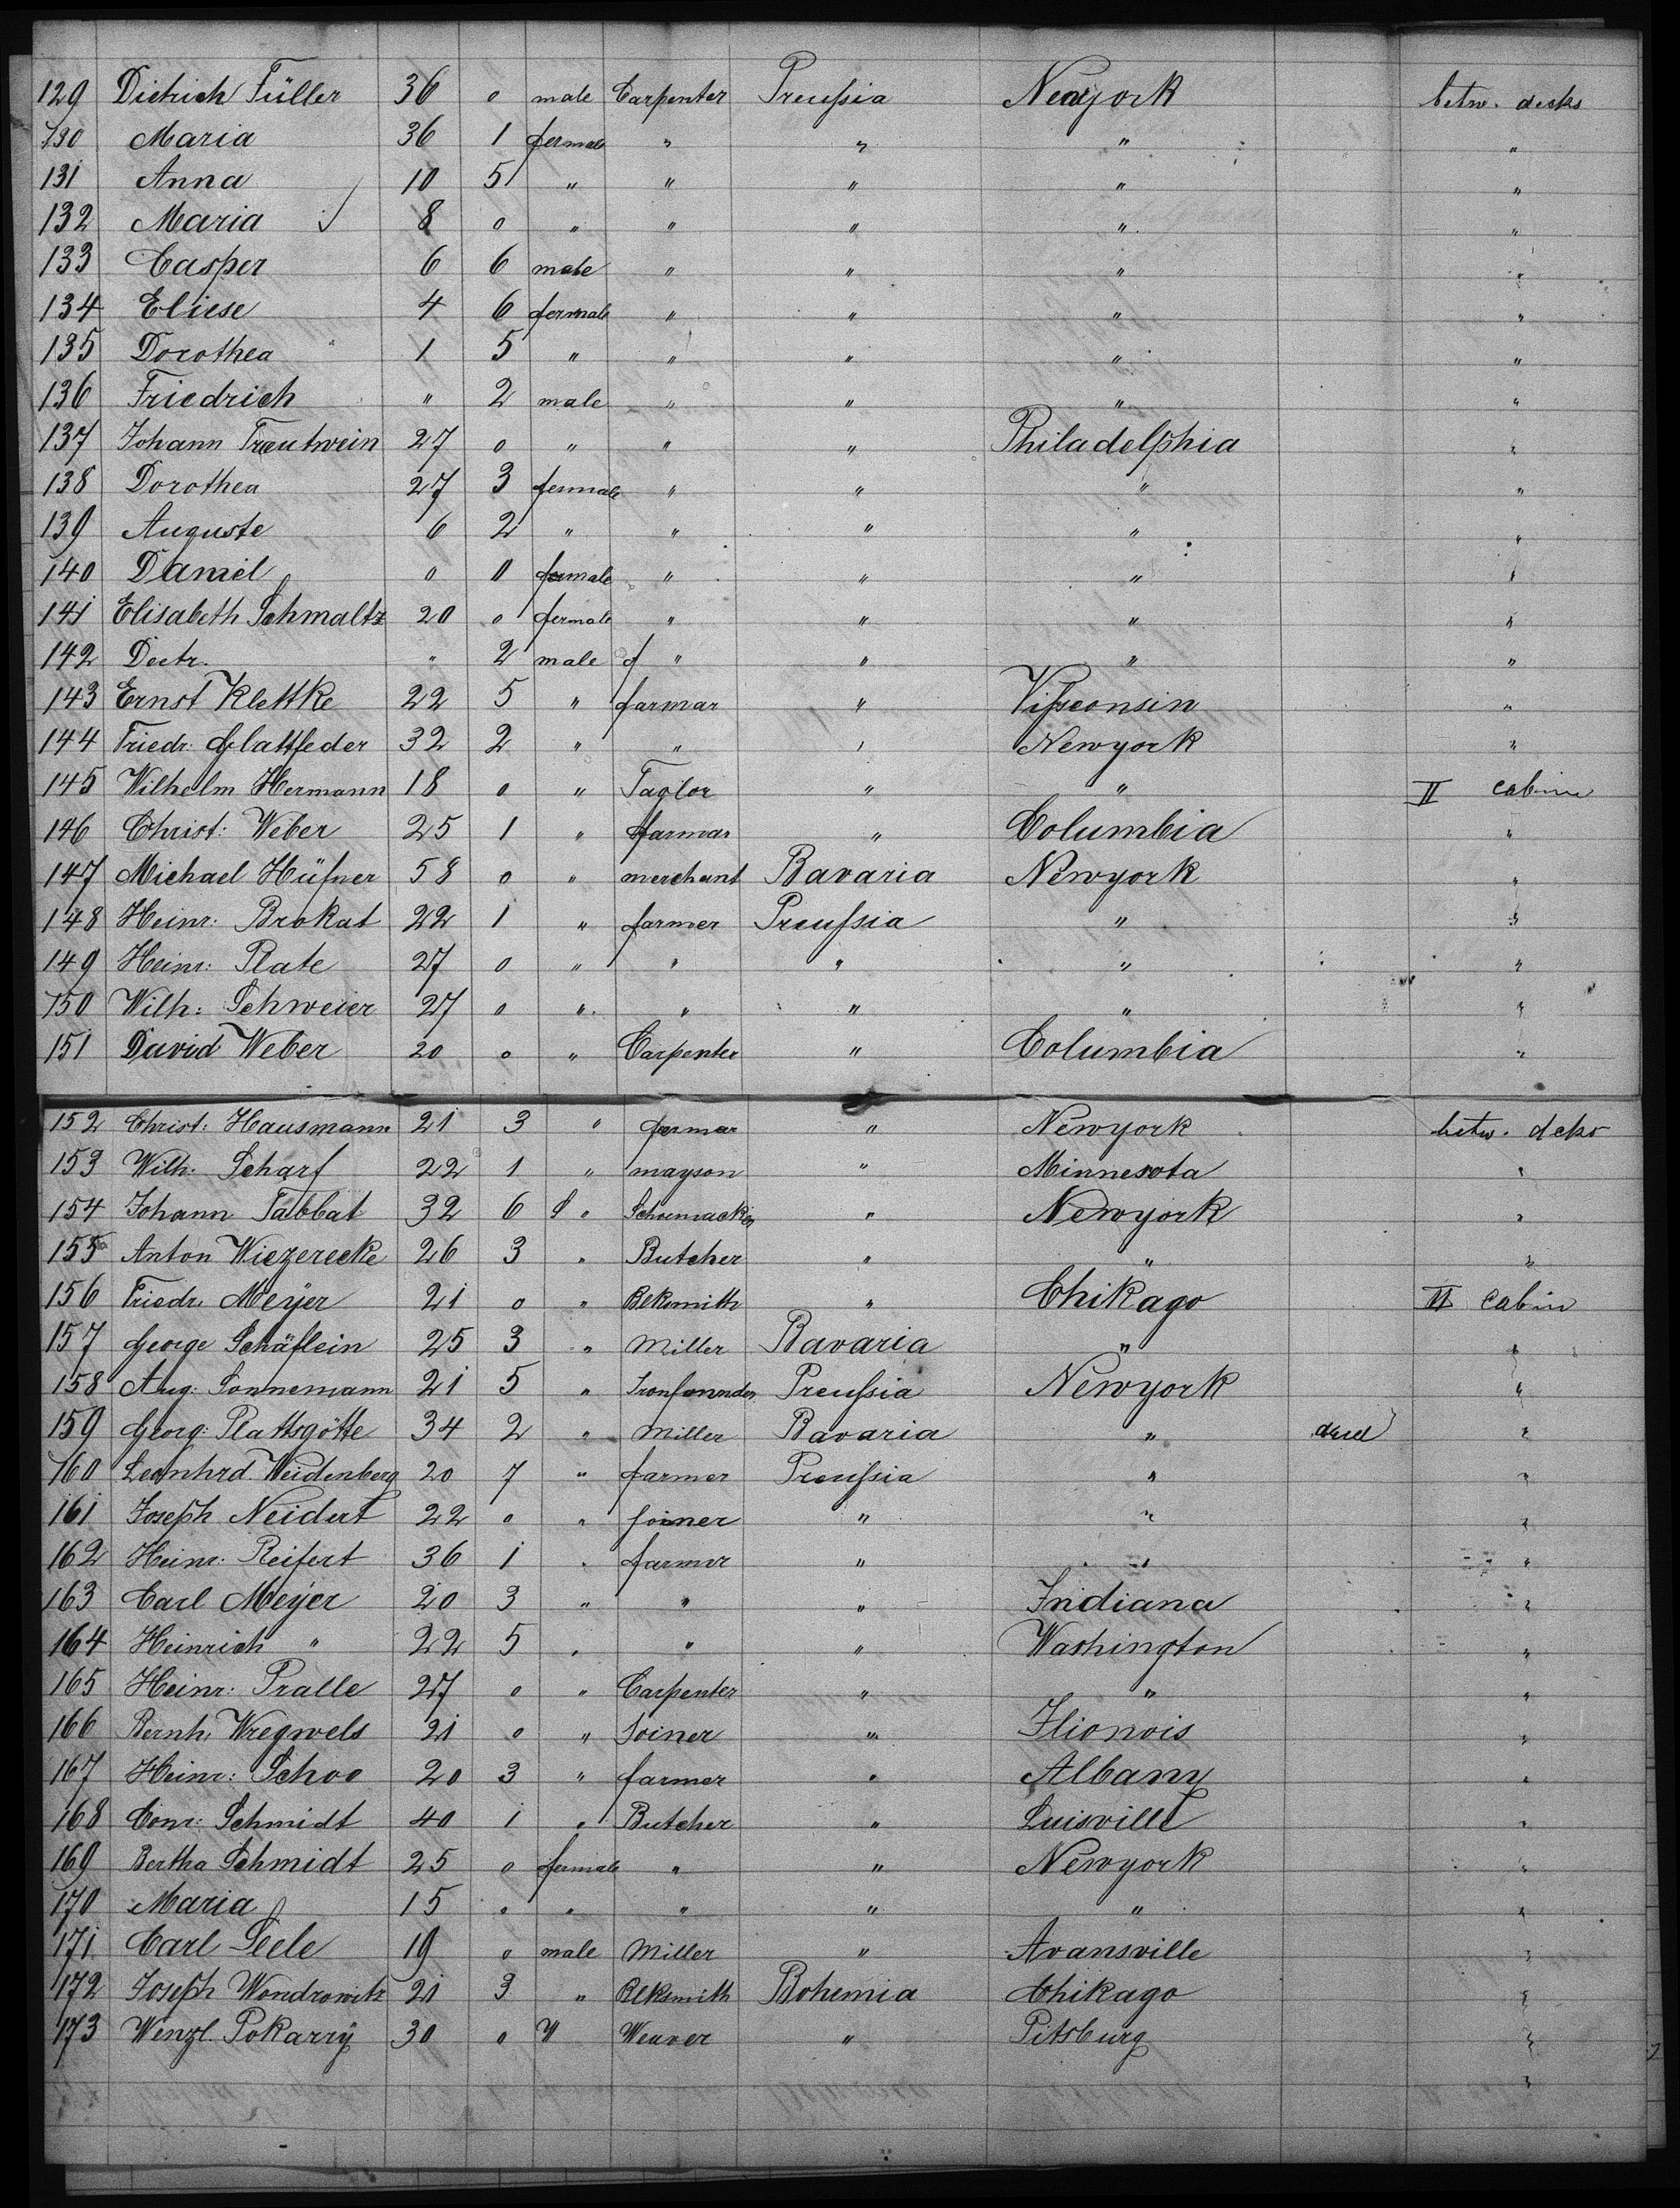 129 Dietrich Füller 36 0 male Carpenter Preußia Newyork betw. decks
130 Maria 36 1 fermale " " " "
131 Anna 10 5 " " " " "
132 Maria 8 0 " " " " "
133 Casper 6 6 male " " " "
134 Eliese 4 6 fermale " " " "
135 Dorothea 1 5 " " " " "
136 Friedrich " 2 male " " " "
137 Johann Trautwein 27 0 " " " Philadelphia "
138 Dorothea 27 3 fermale " " " "
139 Auguste 6 2 " " " " "
140 Daniel 0 0 " " " "
141 Elisabeth Schmaltz 20 0 fermale " " " "
142 " 2 male " " " "
143 Ernst Klettke 22 5 " farmar " Vißconsin "
144 Friedr: Glattfeder 32 2 " " " Newyork "
145 Wilhelm Hermann 18 0 " Taylor " " II cabine
146 Christ: Weber 25 1 " farmar " Columbia "
147 Michael Hüfner 58 0 " merchant Bavaria Newyork "
148 Heinr: Brokat 22 1 " farmer Preußia " "
149 Heinr: Plate 27 0 " " " " "
150 Wilh: Schweier 27 0 " " " " "
151 David Weber 20 0 " Carpenter " Columbia "
152 Christ: Hausmann 21 3 " farmar " Newyork betw. deks
153 Wilh. Scharf 22 1 " mayson " Minnesota "
154 Johann Tabbat 32 6 " Schumacker " Newyork "
155 Anton Wiezerecke 26 3 " Butcher " " "
156 Friedr. Meÿer 21 0 " Blksmith " Chikago II cabin
157 George Schäflein 25 3 " Miller Bavaria " "
158 Aug: Sonnemann 21 5 " Preußia Newyork "
159 Georg: Plattsgötte 34 2 " Miller Bavaria " "
160 Leonhrd Weidenberg 20 7 " farmer Preußia " "
161 Joseph Neidert 22 0 " Joiner " " "
162 Heinr. Reifert 36 1 " farmer " " "
163 Carl Meÿer 20 3 " " " Indiana "
164 Heinrich " 22 5 " " " Washington "
165 Heinr: Pralle 27 0 " Carpenter " " "
166 Bernh. Wregwels 21 0 " Joiner " Ilionois "
167 Heinr: Schoo 20 3 " farmer " Albany "
168 Conr: Schmidt 40 1 " Butcher " Luisville "
169 Bertha Schmidt 25 0 fermale " " Newyork "
170 Maria 15 " " " " " "
171 Carl Seele 19 0 male Miller " Avansville "
172 Joseph Wondrowitz 21 3 " Blksmith Bohemia Chikago "
173 Wenzl. Pokarrÿ 30 0 " Weaver " Pitsburg "
"